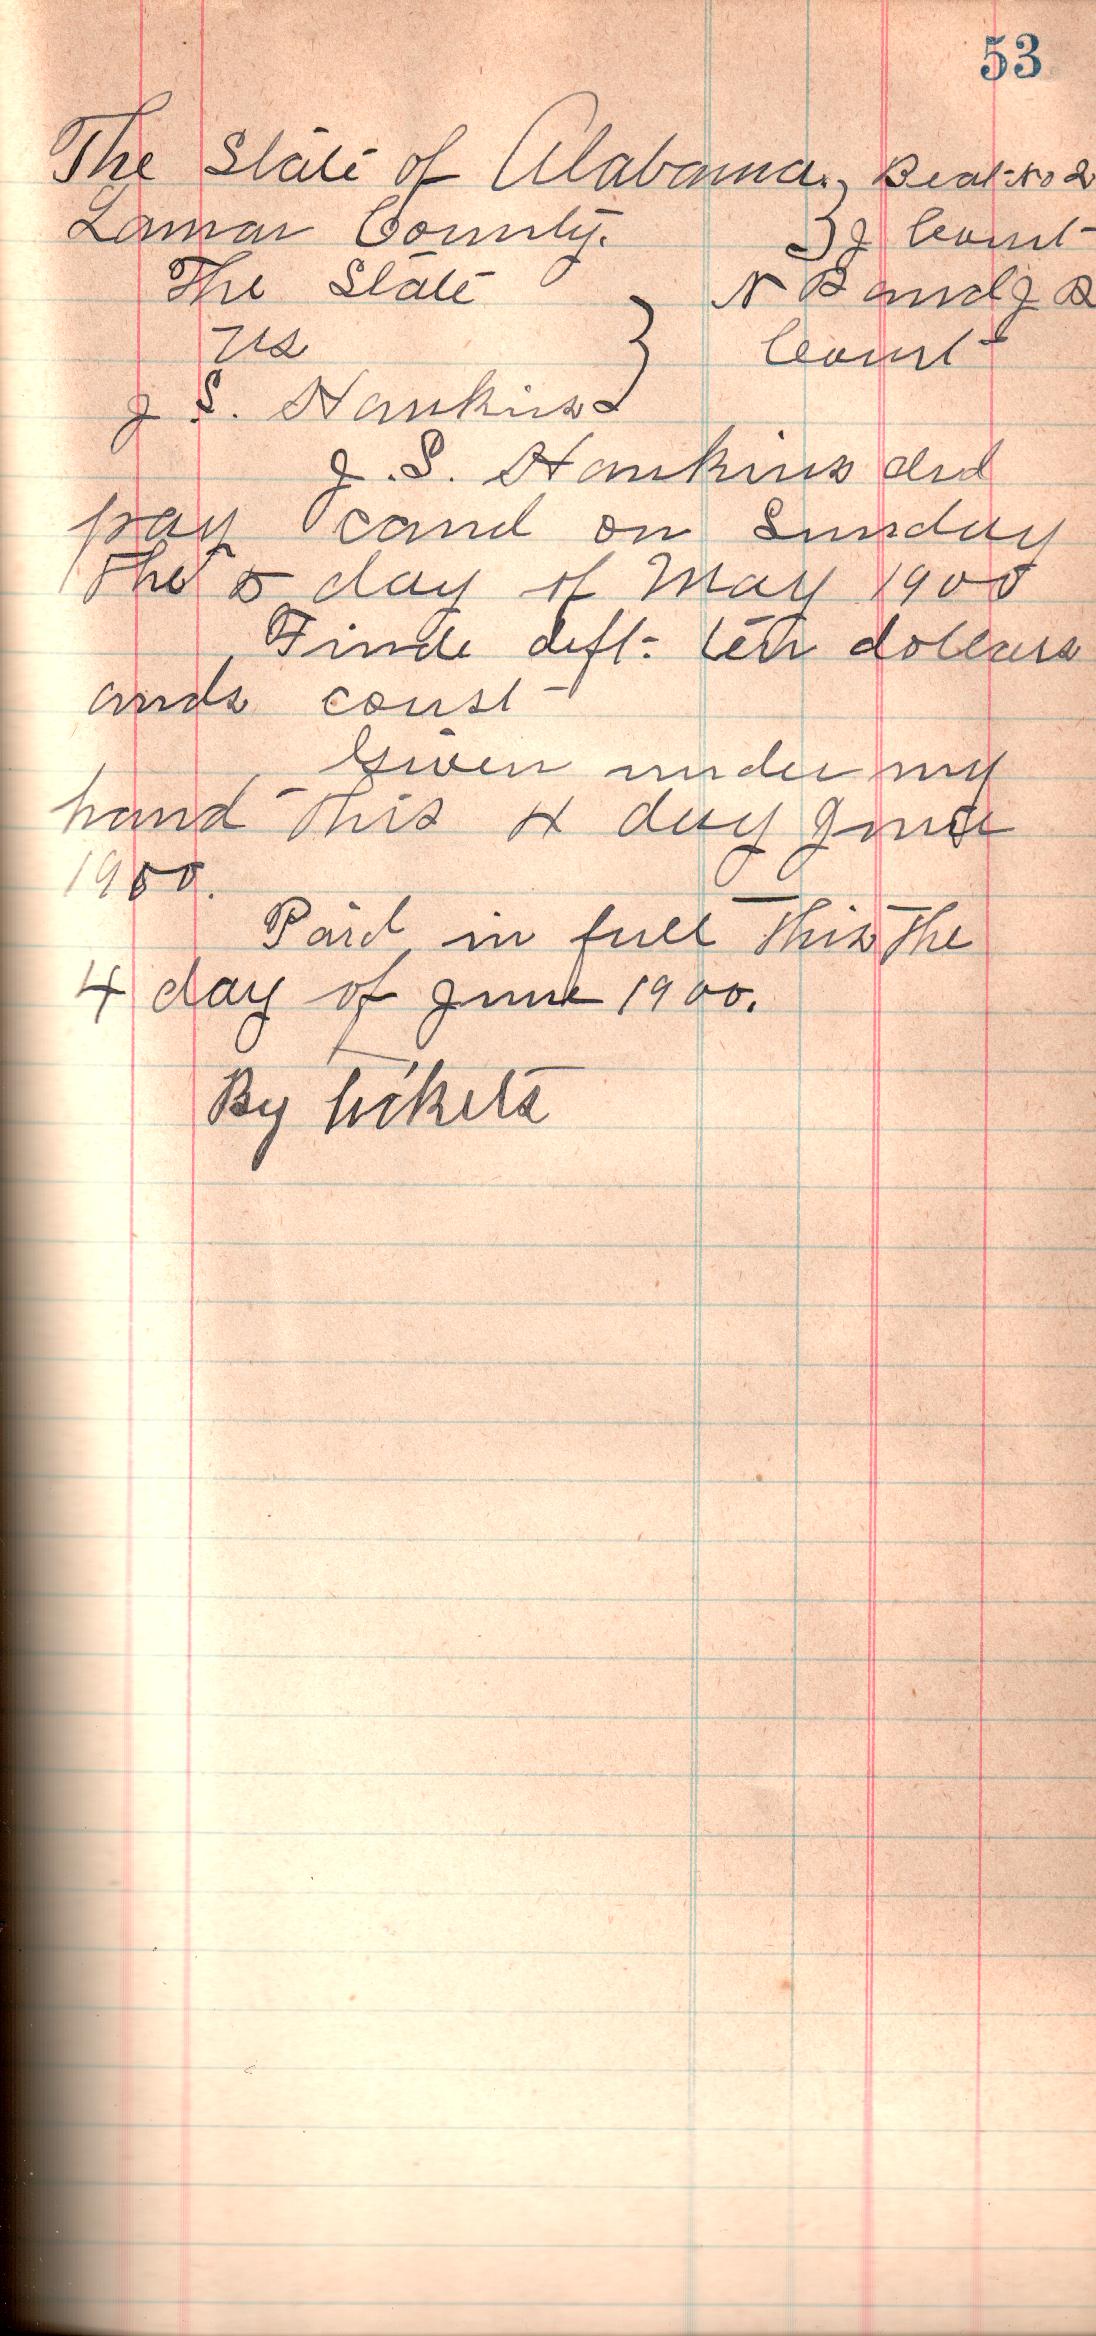 53
The State of Alabama. Beat No 2
Lamar County. } J Court
The State N B and J B
vs } Court
J S. Hankins
J. S. Hankins did
pay card on Sunday
the 5 day of May 1900
Finde deft. ten dollars
ands coust
Given under my
hand This 4 day June
1900.
Paid in full This The
4 day of June 1900.
By tickets